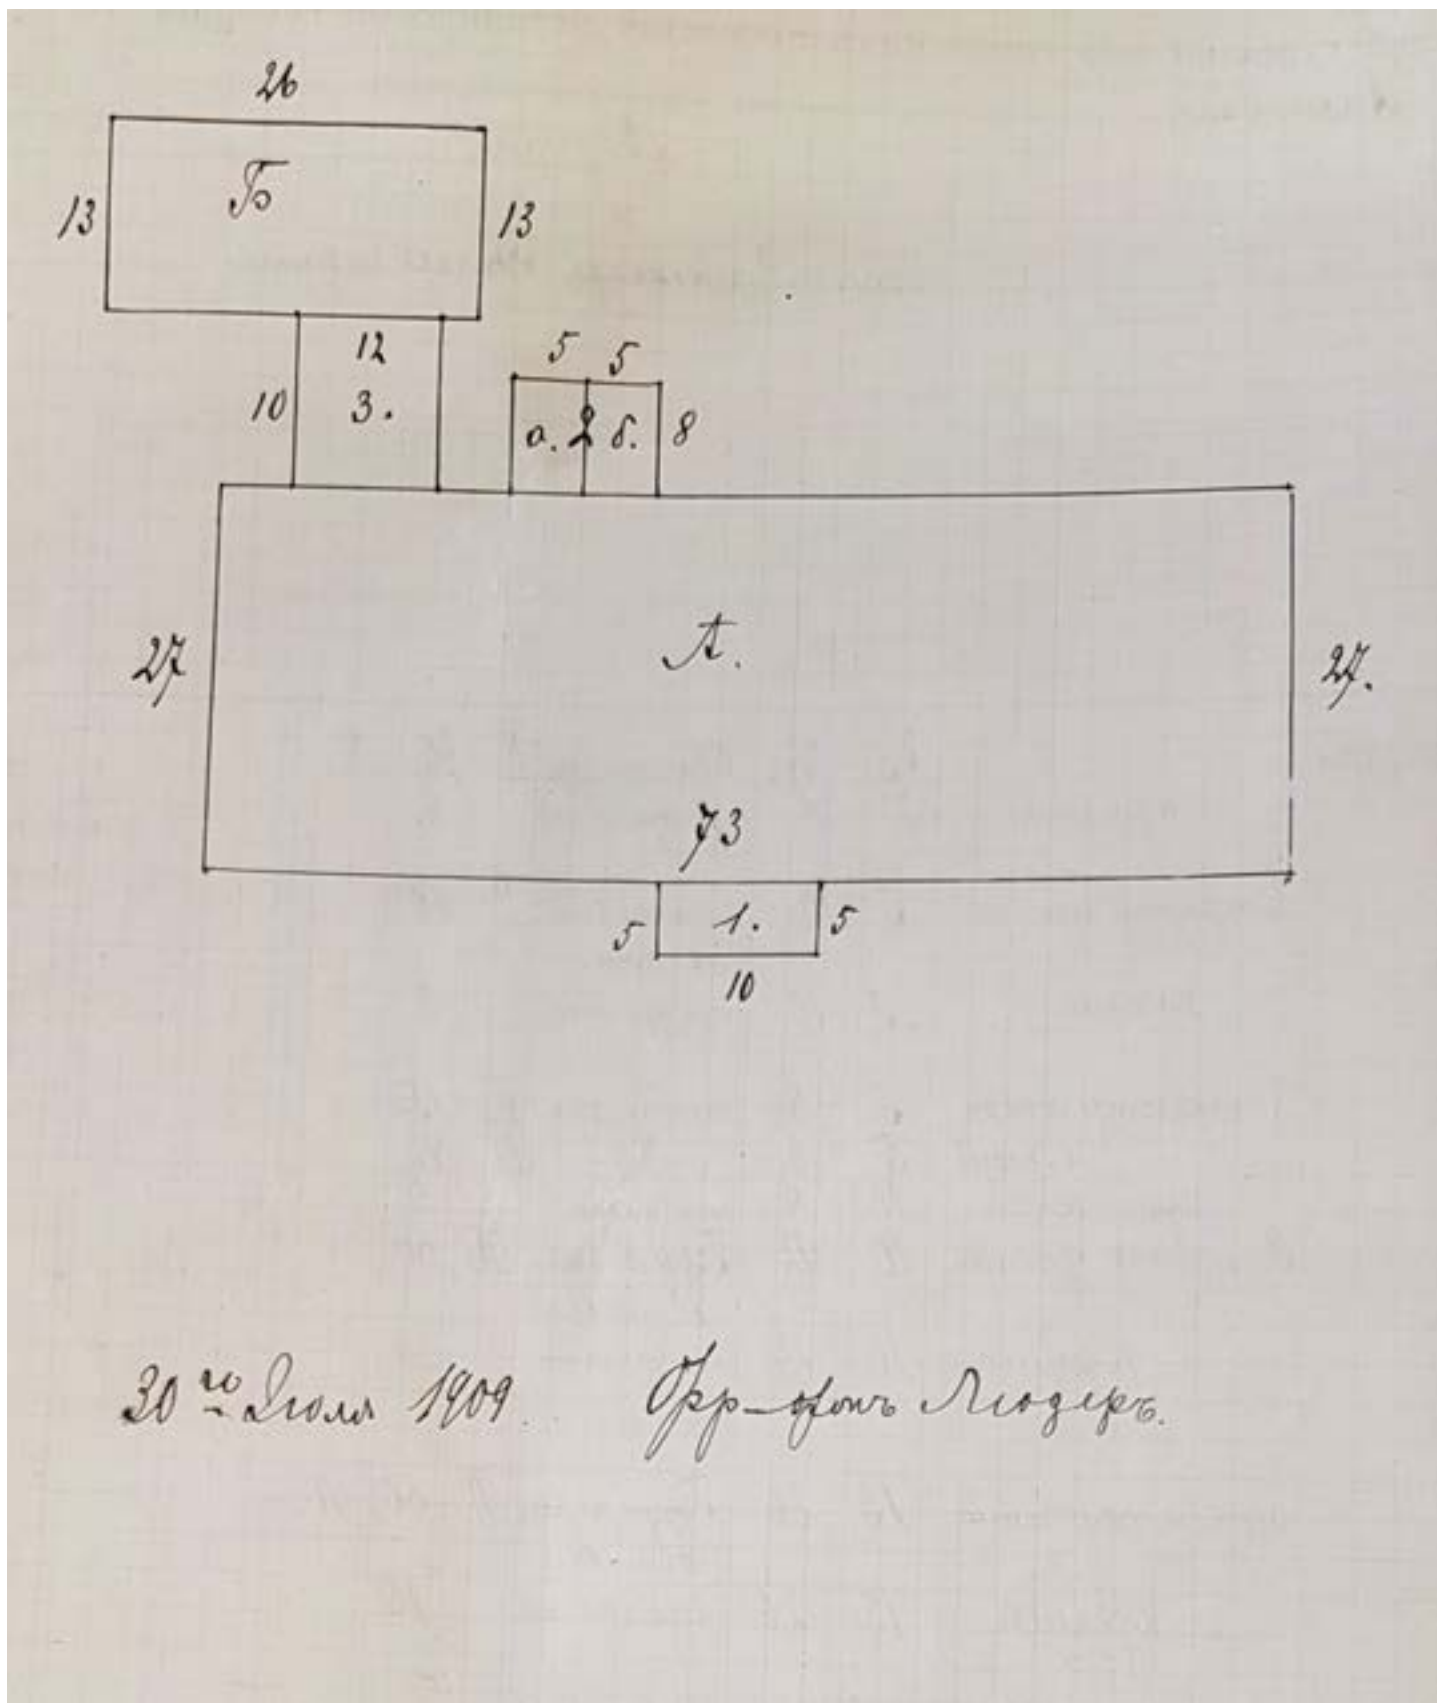 26
Б
13 13
12
5 5
10 3. а. 2 б. 8
А.
27 27.
73
5 1. 5
10
30го Июля 1909. Фр-фонъ Людеръ.